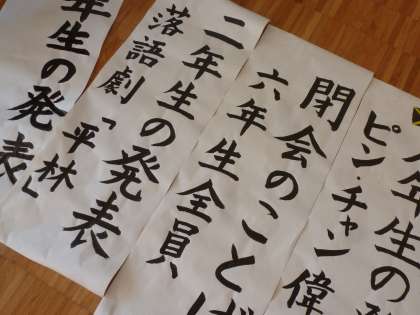 年生の
ピン・チャン偉
閉会のことば
六年生全員、
二年生の発表
落語劇「平林」
年生の発表